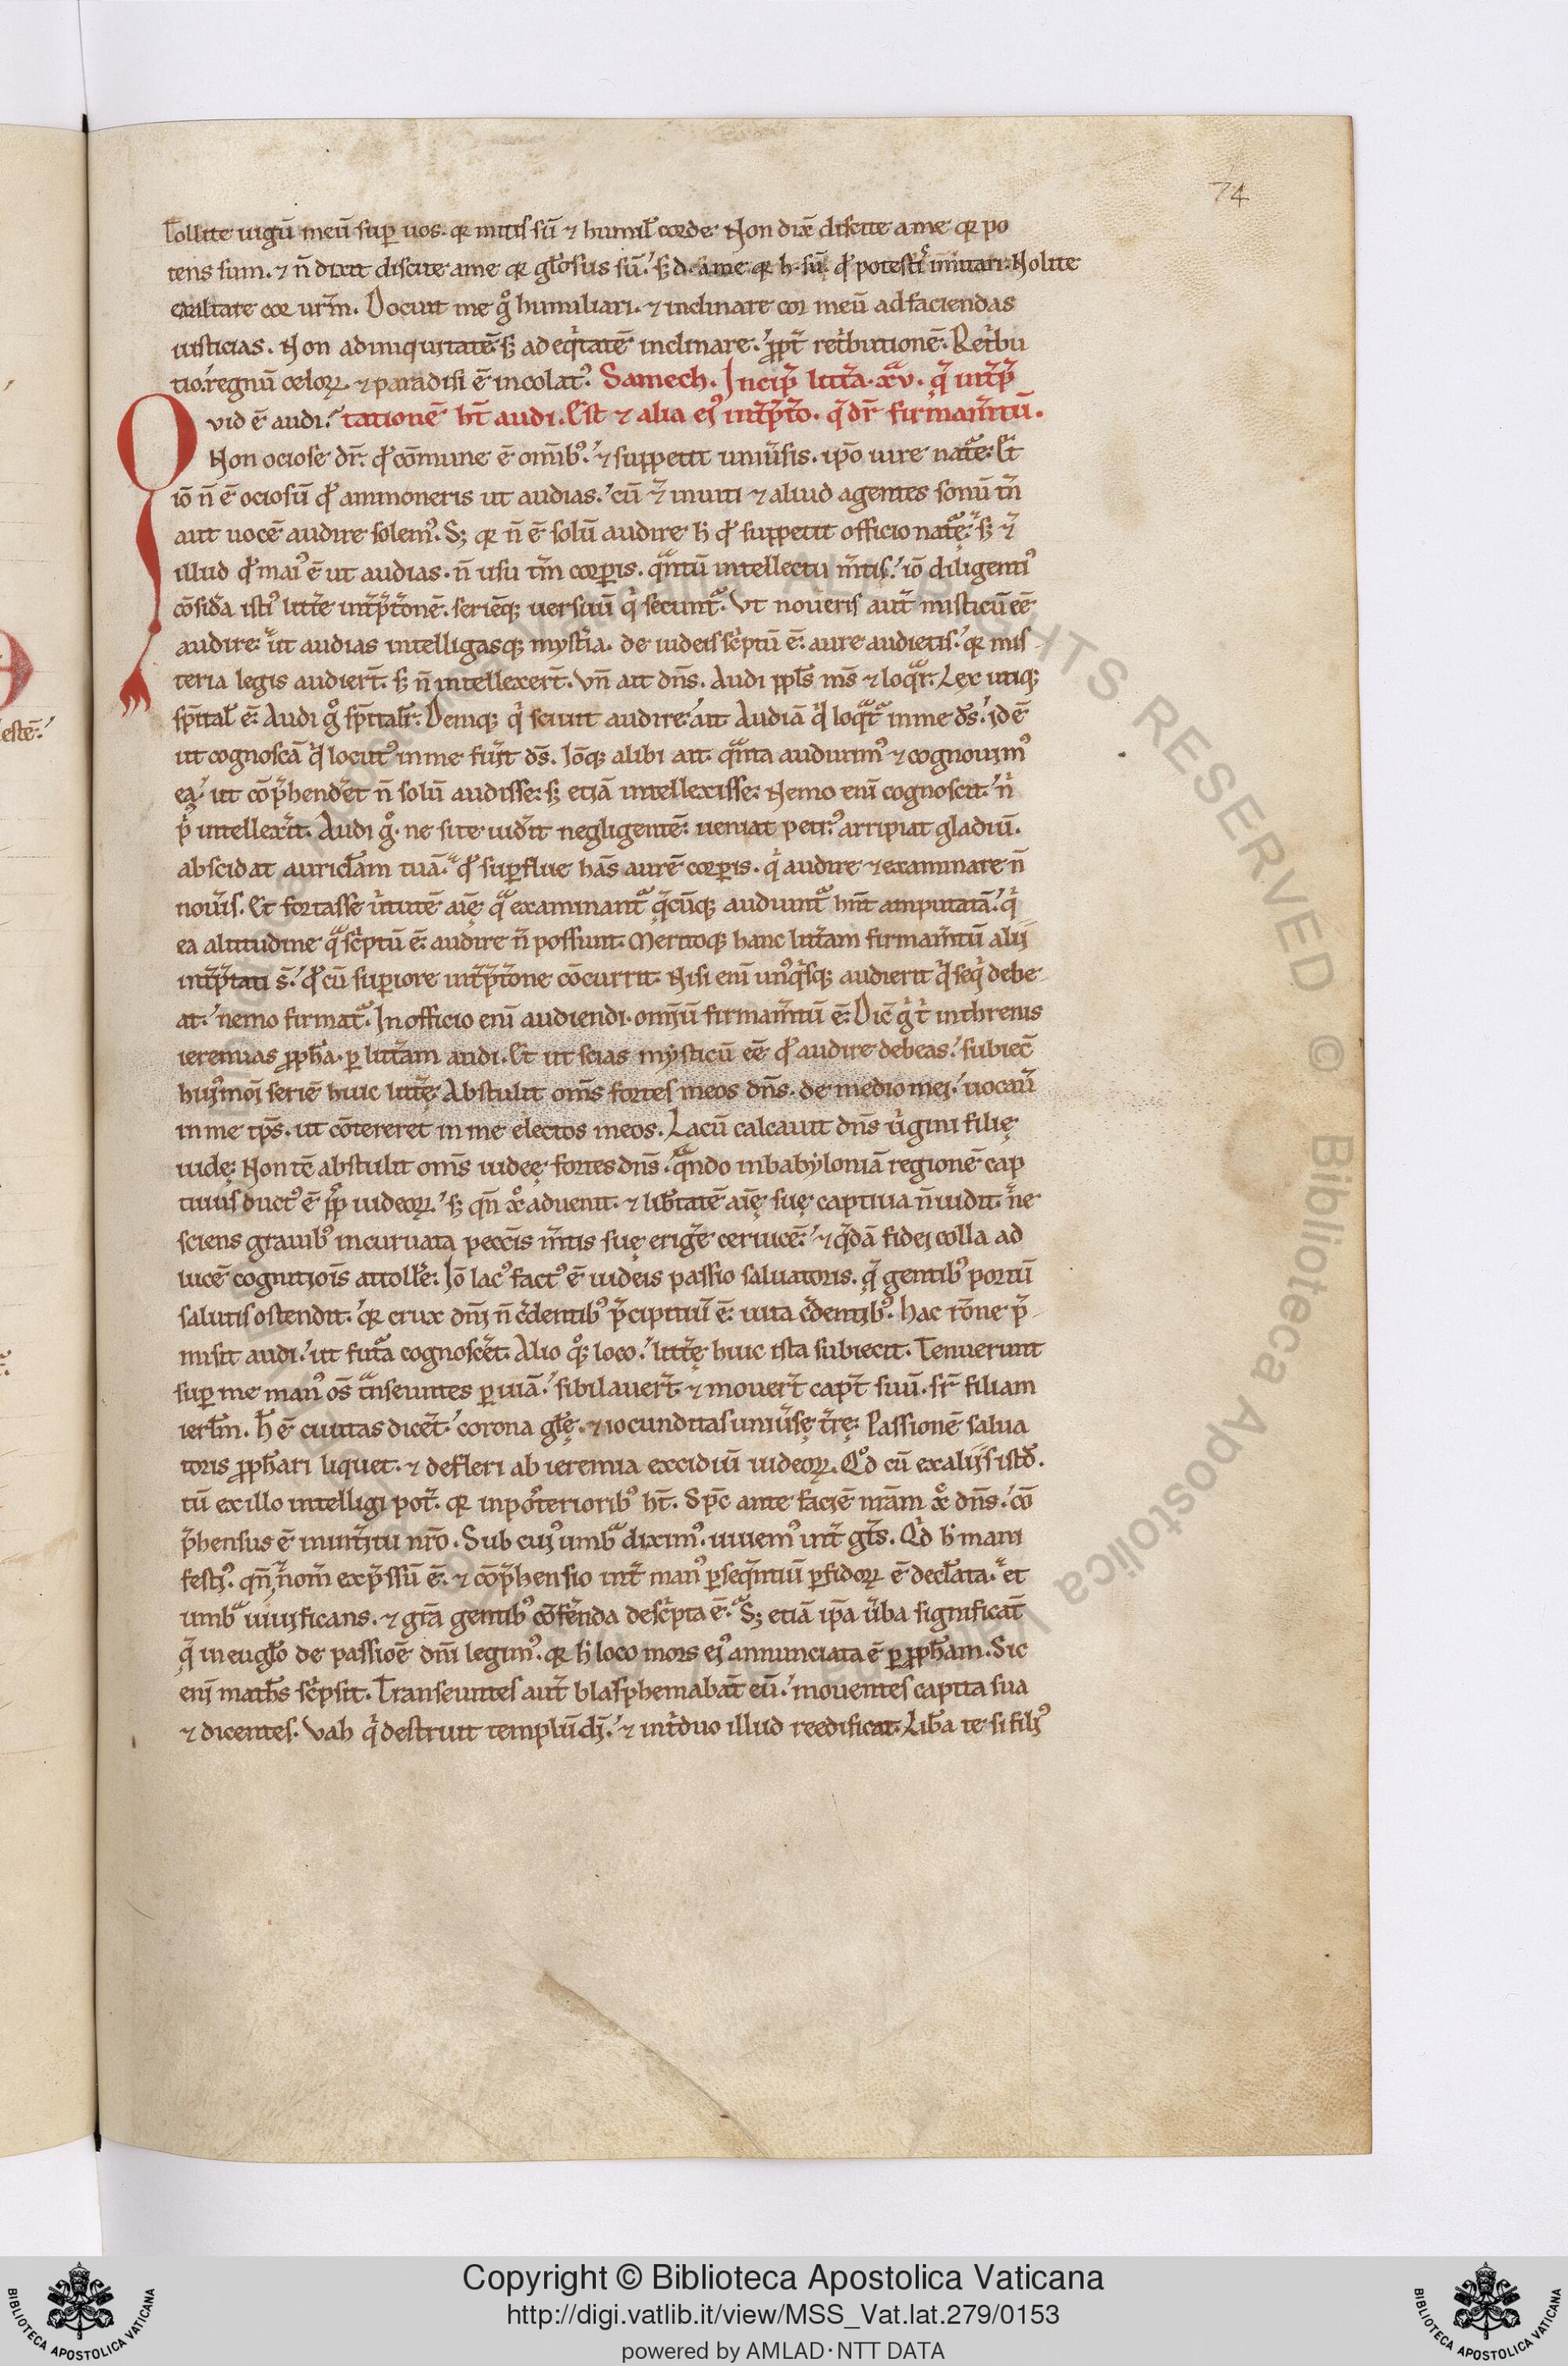 74
Tollite iugū meū sup uos. qr mitis sū ⁊ humil̄ corde. Non dix̄ discite a me qr po
tens sum. ⁊ n̄ dixit discite a me qr gl̄osus sū.
exaltare cor ur̄m. Docuit me gͦ humiliari. ⁊ inclinare cor meū ad faciendas
iusticias. Non ad iniquitatē. sꝫ ad eqⁱtatē inclinare. ꝓpt̄ retⁱbutionē. Retⁱbu
tio. regnū celoꝝ. ⁊ paradisi ē incolatꝰ. Samech. Incip̄ litt̄a. xv. q̄ int̄p̄
Quid ē audi. tationē hт̄ audi. Est ⁊ alia eiꝰ int̄p̄tō. q̄ dr̄ firmam̄tū.
Non ociose dr̄. qd̄ cōmune ē om̄ibꝰ. ⁊ suppetit uniūsis. ip̄o iure nat̄e. Et
iō n̄ ē ociosū qd̄ ammoneris ut audias. cū ⁊ inuiti ⁊ aliud agentes sonū tn̄
aut uocē audire solemꝰ. Sꝫ qr n̄ ē solū audire h̄ qd̄ suppetit officio nat̄ę. sꝫ ⁊
illud qd̄ maiꝰ ē ut audias. n̄ usu tm̄ corꝑis. qⁿtū intellectu m̄tis. iō diligentiꝰ
cōsid̄a istiꝰ litt̄e int̄p̄tōnē. seriēqꝫ uersuū qⁱ secunt̄. Vt noueris aut̄ misticū eē
audire. ut audias intelligasqꝫ myst̄ia. de iudeis scⁱptū ē. aure audietis. qr mis
teria legis audiert̄. sꝫ n̄ intellexert̄. Vn̄ ait dn̄s. Audi ppl̄s m̄s ⁊ loqr̄. Lex utiqꝫ
sp̄ital̄ ē. Audi gͦ sp̄italr̄. Deniqꝫ qⁱ sciuit audire. ait. Audiā qd̄ loqt̄ in me ds̄. id ē
ut cognoscā qd̄ locutꝰ in me fuīt ds̄. Iōqꝫ alibi ait. qⁿta audiuimꝰ ⁊ cognouimꝰ
ea. ut cōp̄hend̄et n̄ solū audisse. sꝫ etiā intellexisse. Nemo enī cognoscit. nⁱ
pⁱ intellex̄it. Audi gͦ. ne si te uid̄it negligentē. ueniat petrꝰ arripiat gladiū.
abscidat auricl̄am tuā. qd̄ suꝑflue hās aurē corꝑis. qⁱ audire ⁊ examinare n̄
nouīs. Et fortasse uⁱtutē aīę qᵃ examinant̄ q̄cūqꝫ audiunt̄ hn̄t amputatā. qⁱ
ea altitudine qᵃ scⁱptū ē. audire n̄ possunt. Meritoqꝫ hanc litt̄am firmam̄tū alij
int̄p̄tati s̄. qd̄ cū suꝑiore int̄p̄tōne cōcurrit. Nisi enī unꝰqⁱsqꝫ audierit qd̄ seqⁱ debe
at. nemo firmat̄. In officio enī audiendi. omīū firmam̄tū ē. Dic̄ gⁱtⁱ in threnis
ieremias ꝓph̄a. ꝑ litt̄am audi. Et ut scias mysticū eē qd̄ audire debeas. subiec̄
huiꝰmōi seriē huic litt̄ę. Abstulit om̄s fortes meos dn̄s. de medio mei. uocaū
in me tp̄s. ut cōtereret in me electos meos. Lacū calcauit dn̄s uⁱgini filię
iudę. Non tc̄ abstulit om̄s iudeę fortes dn̄s. qⁿdo in babyloniā regionē cap
tiuus ductꝰ ē pp̄l̄s iudeoꝝ. sꝫ qn̄ xͦ aduenit. ⁊ lib̄tatē aīę suę captiua n̄ uidit. ne
sciens grauibꝰ incuruata peccīs m̄tis suę eriḡe ceruicē. ⁊ q̄dā fidei colla ad
lucē cognitiois attoll̄e. Iō lacꝰ factꝰ ē iudeis passio saluatoris. q̄ gentibꝰ portū
salutis ostendit. qr crux dn̄i n̄ c̄dentibꝰ p̄cipitiū ē. uita c̄dentibꝰ. Hac rōne p̄
misit audi. ut fut̄a cognosc̄et. Alio qͦqꝫ loco. litt̄ę huic ista subiecit. Tenuerunt
sup me manꝰ os̄ tⁿseuntes ꝑ uiā. sibilauert̄. ⁊ mouert̄ capt̄ suū. sr̄ filiam
ierl̄m. H̄ ē ciuitas dicet̄. corona gl̄ę. ⁊ iocunditas uniūsę t̄rę. Passionē salua
toris ꝓph̄ari liquet. ⁊ defleri ab ieremia excidiū iudeoꝝ. Qd̄ cū ex alijs istd̄.
tū ex illo intelligi pot̄. qr in post̄erioribꝰ ht̄. Sp̄c ante faciē nr̄am xͦ dn̄s. cō
p̄hensus ē in int̄itu nr̄o. Sub cuiꝰ umbᵃ diximꝰ. uiuemꝰ int̄ gt̄s. Qd̄ h̄ mani
festiꝰ. qn̄ ⁊ nom̄ exp̄ssū ē. ⁊ cōp̄hensio int̄ manꝰ ꝑseq̄ntiū ꝑfidoꝝ ē decl̄ata. et
umbᵃ uiuificans. ⁊ grā gentibꝰ cōf̄enda descⁱpta ē. Sꝫ etiā ip̄a ūba significāt
q̄ in eugl̄o de passiōe dn̄i legimꝰ. qr h̄ loco mors eiꝰ annunciata ē ꝑ ꝓph̄am. Sic
enī math̄s scⁱpsit. Transeuntes aut̄ blasphemabāt eū. mouentes capita sua
⁊ dicentes. Vah qⁱ destruit templū di. ⁊ in tⁱduo illud reedificat. Lib̄a te si filiꝰ
Copyright © Biblioteca Apostolica Vaticana
http://digi.vatlib.it/view/MSS_Vat.lat.279/0153
powered by AMLAD·NTT DATA